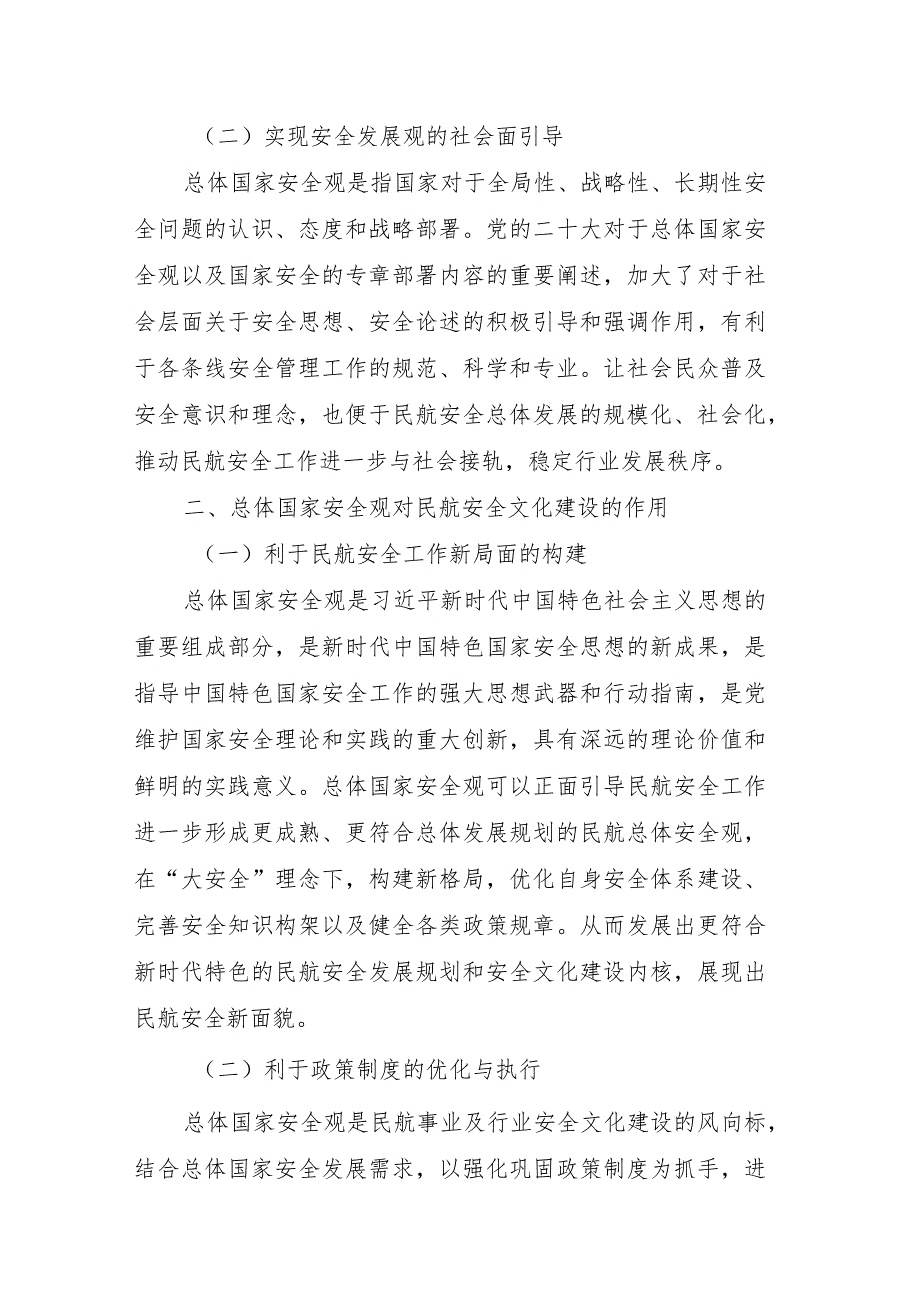 （二）实现安全发展观的社会面引导
总体国家安全观是指国家对于全局性、战略性、长期性安
全问题的认识、态度和战略部署。党的二十大对于总体国家安
全观以及国家安全的专章部署内容的重要阐述，加大了对于社
会层面关于安全思想、安全论述的积极引导和强调作用，有利
于各条线安全管理工作的规范、科学和专业。让社会民众普及
安全意识和理念，也便于民航安全总体发展的规模化、社会化，
推动民航安全工作进一步与社会接轨，稳定行业发展秩序。
二、总体国家安全观对民航安全文化建设的作用
（一）利于民航安全工作新局面的构建
总体国家安全观是习近平新时代中国特色社会主义思想的
重要组成部分，是新时代中国特色国家安全思想的新成果，是
指导中国特色国家安全工作的强大思想武器和行动指南，是党
维护国家安全理论和实践的重大创新，具有深远的理论价值和
鲜明的实践意义。总体国家安全观可以正面引导民航安全工作
进一步形成更成熟、更符合总体发展规划的民航总体安全观，
在“大安全”理念下，构建新格局，优化自身安全体系建设、
完善安全知识构架以及健全各类政策规章。从而发展出更符合
新时代特色的民航安全发展规划和安全文化建设内核，展现出
民航安全新面貌。
（二）利于政策制度的优化与执行
总体国家安全观是民航事业及行业安全文化建设的风向标，
结合总体国家安全发展需求，以强化巩固政策制度为抓手，进